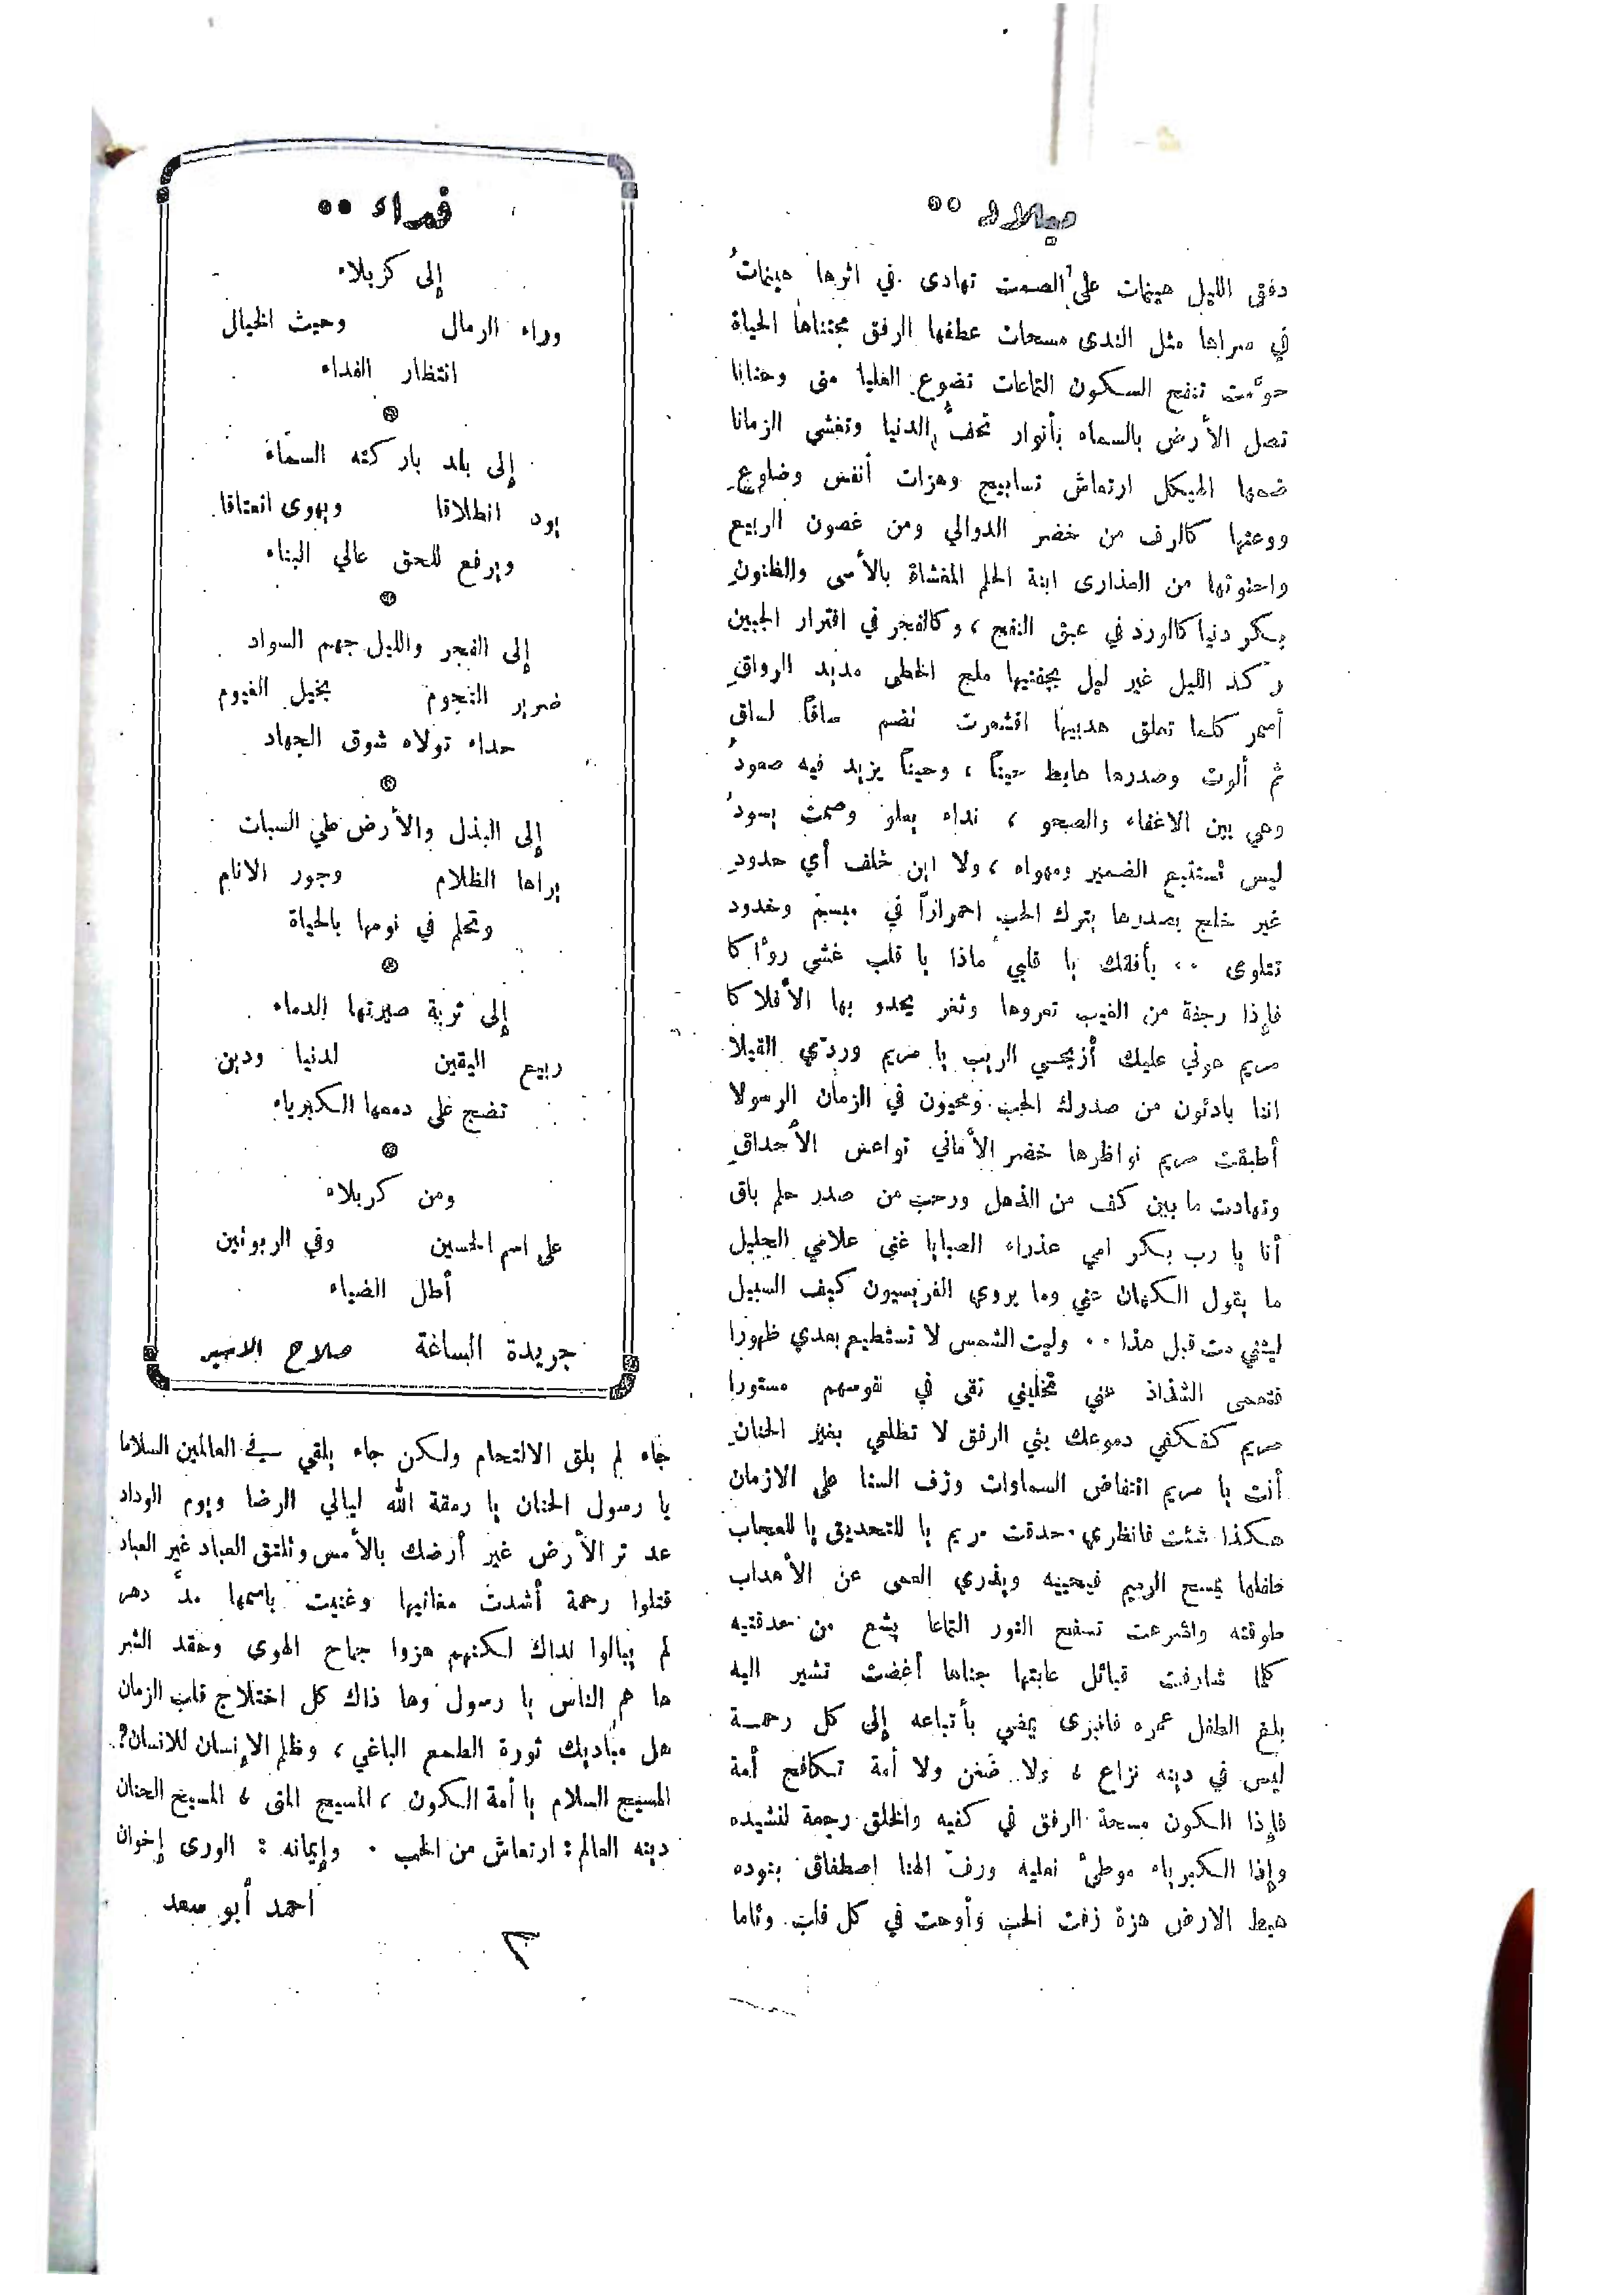 ميلاد ..
دفق الليل هينات على الصمت تهادى في اثرها هينات
في سراها مثل الندى مسحات عطفها الرفق مجتناها الحياة
حوّمت تنفح السكون التماعات تضوع العليا منى وحنانا
تصل الأرض بالسماء بأنوار تحفّ الدنيا وتغشي الزمانا
ضمها الهيكل ارتعاش تسابيح وهزات أنفس وضلوع
ووعتها كالرف من خضر الدوالي ومن غصون الربيع
واحتوتها من العذارى ابنة الحلم المغشاة بالأسى والظنون
بكر دنيا كالورد في عبق النفح ، وكالفجر في افترار الجبين
ركد الليل غير ليل بجفنيها ملح الخطى مديد الرواق
أسمر كلما تعلق هدبيها اقشعرت تضم ساقاً لساق
ثم ألوت وصدرها هابط حيناً ، وحيناً يزيد فيه صعود
وهي بين الاغفاء والصحو ، نداء يعلو وصمت يسود
ليس تستتبع الضمير ومهواه ، ولا اين خلف أي حدود
غير خلج بصدرها يترك الحب احمرازاً في مبسم وخدود
تتلوى .. بأفقك يا قلبي ماذا يا قلب غشي رؤاكا
فإذا رجفة من الغيب تعروها وثغر يحدو بها الأفلاكا
مريم هوني عليك أزيحي الريب يا مريم وردّي القيلا
اننا بادئون من صدرك الحب ومحيون في الزمان الرسولا
أطبقت مريم نواظرها خضر الأماني نواعس الأحداق
وتهادت ما بين كف من الذهل ورحب من صدر حلم باق
أنا يا رب بكر امي عذراء الصبايا غنى علامي الجليل
ما يقول الكهان عني وما يروي الفريسيون كيف السبيل
ليتني مت قبل هذا .. وليت الشمس لا تستطيع بعدي ظهورا
فتعمى الشذاذ عني تخليني تقى في نفوسهم مستورا
مريم كفكفي دموعك بثي الرفق لا تطلعي بغير الحنان
أنت يا مريم انتفاض السماوات وزف السنا على الازمان
هكذا شئت فانظري . حدقت مريم يا للتحديق يا للعجاب
طفلها يمسح الرميم فيحييه ويذري العمى عن الأهداب
طوقته واشرعت تسفح النور التماعا يشع من حدقتيه
كلما شارفت قبائل عابتها جناها أغضت تشير اليه
بلغ الطفل عمره فانبرى يمضي بأتباعه إلى كل رحمة
ليس في دينه نزاع ، ولا ضغن ولا أمة تكافح أمة
فإذا الكون مسحة الرفق في كفيه والخلق رحمة لنشيده
وإذا الكبرياء موطئ نعليه ورفّ الهنا اصطفاق بنوده
هبط الارض هزة زفت الحب وأوحت في كل قلب وئاما
جاء لم يلق الالتحام ولكن جاء يلقي في العالمين السلاما
يا رسول الحنان يا رمقة الله ليالي الرضا ويوم الوداد
عد تر الأرض غير أرضك بالأمس وتلتق العباد غير العباد
قتلوا رحمة أشدت مغانيها وغنيت باسمها مدّ دهر
لم يبالوا لداك لكنهم هزوا جماح الهوى وحقد الشر
ها هم الناس يا رسول وها ذاك كل اختلاج قلب الزمان
هل مباديك ثورة الطمع الباغي ، وظلم الإنسان للانسان؟
المسيح السلام يا أمة الكون ، المسيح المنى ، المسيح الحنان
دينه العالم : ارتعاش من الحب . وإيمانه : الورى إخوان
احمد أبو سعد
فداء ..
إلى كربلاء
وراء الرمال وحيث الخيال
انتظار الفداء
إلى بلد باركته السماء
يود انطلاقا ويهوى انعتاقا
ويرفع للحق عالي البناء
إلى الفجر والليل جهم السواد
ضرير النجوم بخيل الغيوم
حداء تولاه شوق الجهاد
إلى البذل والأرض طي السبات
يراها الظلام وجور الانام
وتحلم في نومها بالحياة
إلى تربة صيرتها الدماء
ربيع اليقين لدنيا ودين
تضج على دمعها الكبرياء
ومن كربلاء
على اسم الحسين وفي الربوتين
أطل الضياء
جريدة الساعة صلاح الاسير
٣